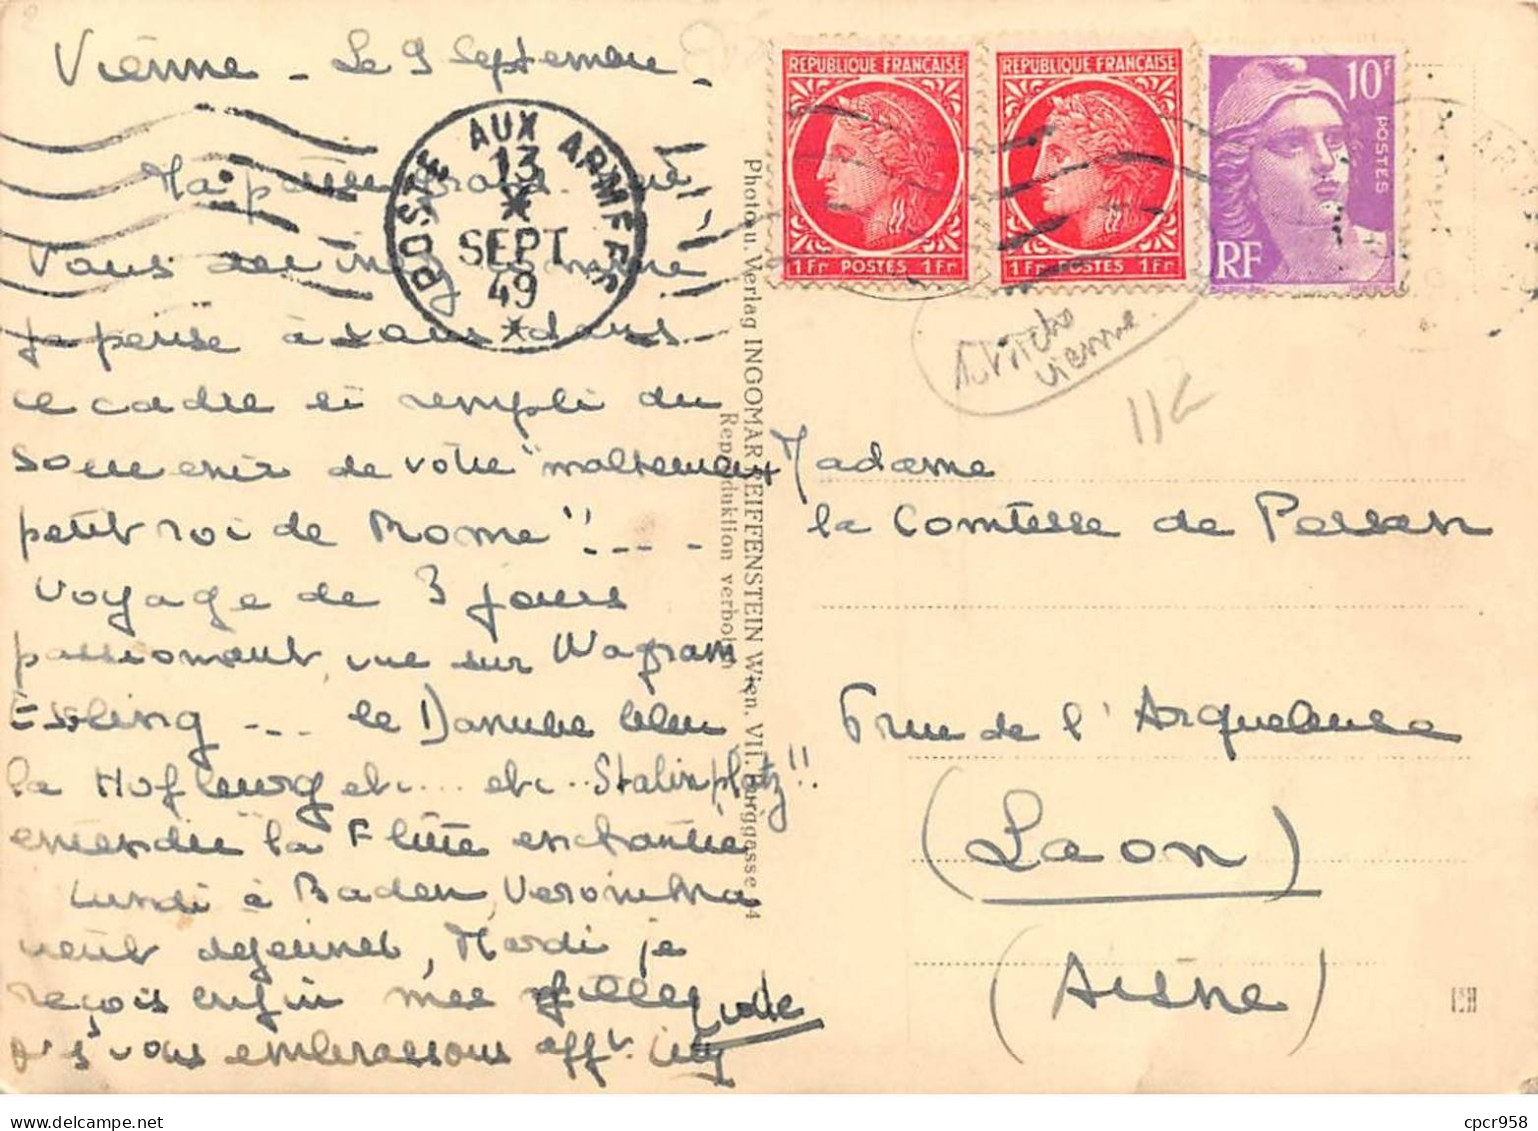 Vienne - Le 9 Septembre -
POSTE AUX ARMEES
13
SEPT
49
Vous
je pense à vous dans
ce cadre si rempli du
souvenir de votre "maltement
petit roi de Rome"!...
voyage de 3 jours
passionnant, vue sur Wagram,
Essling --- le Danube bleu
la Hofburg etc... etc... Stalinplatz!!
entendu "la Flûte enchantée
Lundi à Baden, Veronika
vient déjeuner, Mardi je
reçois enfin mes filles
vous embrassons afft.
Photo u. Verlag INGOMAR SEIFFENSTEIN Wien, VII. Burggasse 4
Reproduktion verboten
REPUBLIQUE FRANÇAISE
1 Fr POSTES 1 Fr
REPUBLIQUE FRANÇAISE
1 Fr POSTES 1 Fr
10F
POSTES
RF
Autriche
Vienne
112
Madame
la Comtesse de Persan
7 rue de l'Arquebuse
(Laon)
(Aisne)
cpcr958